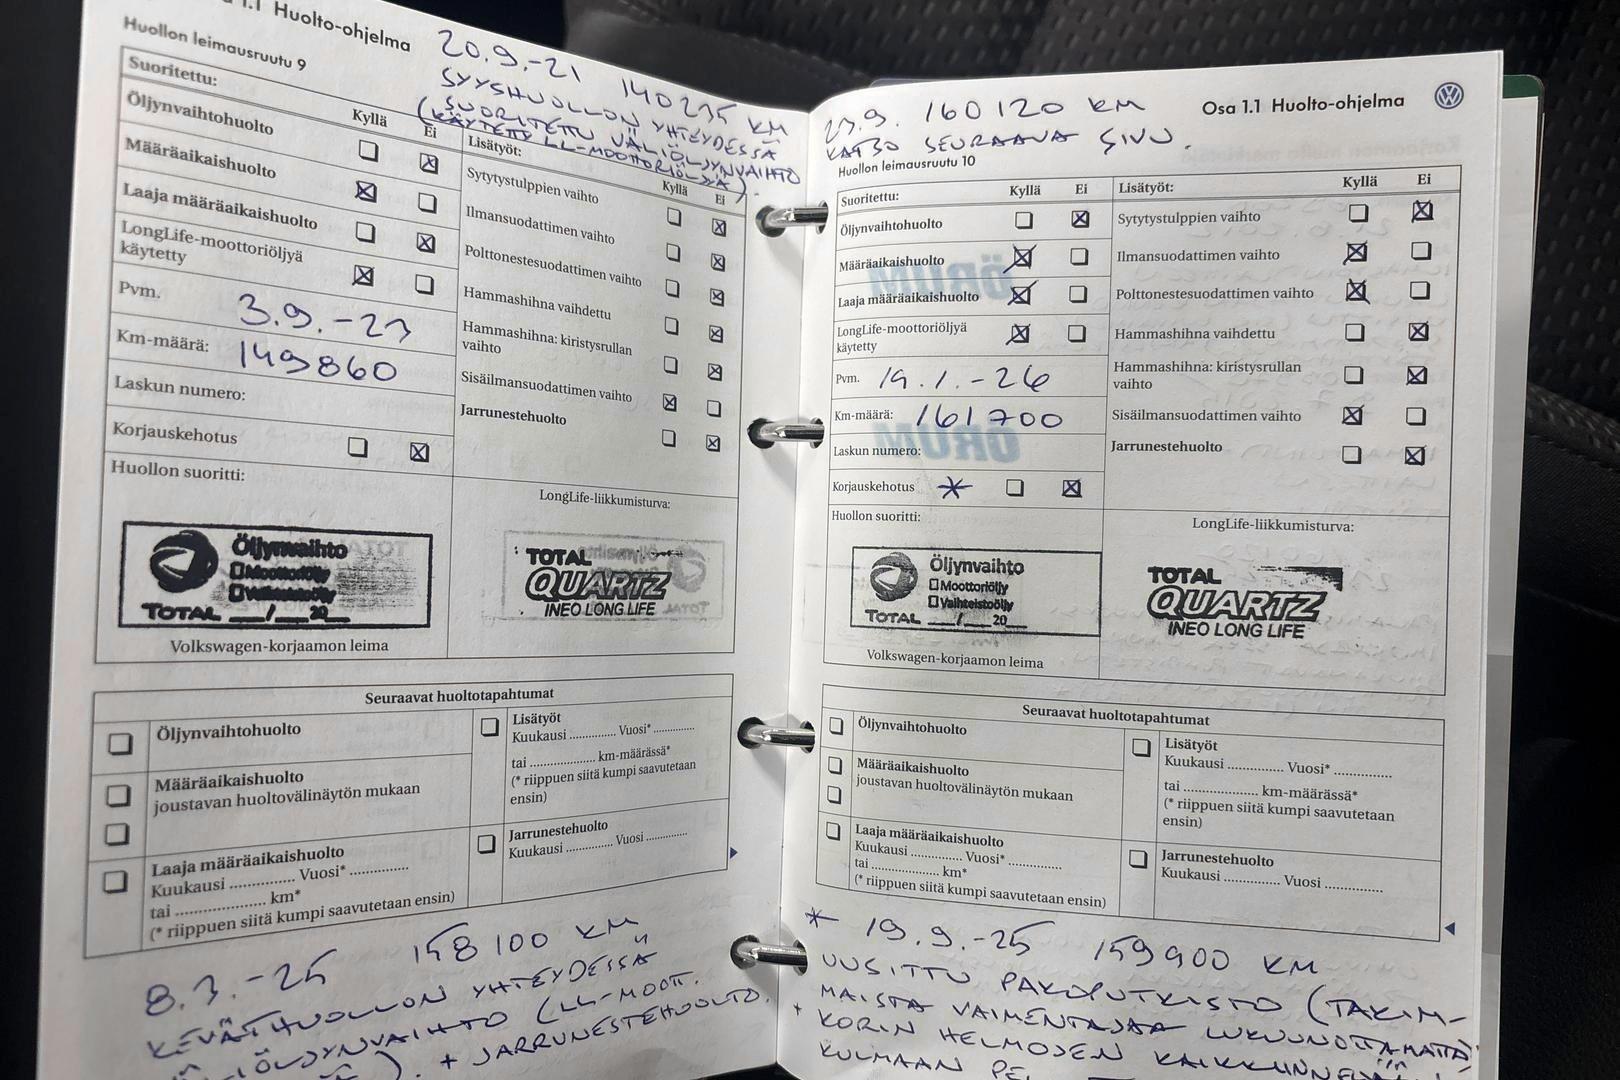 1.1 Huolto-ohjelma
Huollon leimausruutu 9
20.9.-21 140235 KM
SYYSHUOLLON YHTEYDESSÄ
(SUORITETTU VÄLIÖLJYNVAIHTO
KÄYTETTY LL-MOOTTORIÖLJYÄ).
Suoritettu:
Kyllä Ei
Öljynvaihtohuolto
Määräaikaishuolto
Laaja määräaikaishuolto
LongLife-moottoriöljyä
käytetty
Pvm. 3.9.-23
Km-määrä: 149860
Laskun numero:
Korjauskehotus
Huollon suoritti:
Öljynvaihto
Moottoriöljy
Vaihteistoöljy
TOTAL __/__ 20__
Volkswagen-korjaamon leima
Lisätyöt:
Kyllä Ei
Sytytystulppien vaihto
Ilmansuodattimen vaihto
Polttonestesuodattimen vaihto
Hammashihna vaihdettu
Hammashihna: kiristysrullan
vaihto
Sisäilmansuodattimen vaihto
Jarrunestehuolto
LongLife-liikkumisturva:
TOTAL
QUARTZ
INEO LONG LIFE
Seuraavat huoltotapahtumat
Öljynvaihtohuolto
Määräaikaishuolto
joustavan huoltovälinäytön mukaan
Laaja määräaikaishuolto
Kuukausi .............. Vuosi* ..............
tai .................... km*
(* riippuen siitä kumpi saavutetaan ensin)
Lisätyöt
Kuukausi ............ Vuosi* ............
tai .................... km-määrässä*
(* riippuen siitä kumpi saavutetaan
ensin)
Jarrunestehuolto
Kuukausi ............ Vuosi ............
8.3.-25 158100 KM
KEVÄTHUOLLON YHTEYDESSÄ
ÖLJYNVAIHTO (LL-MOOTT.
). + JARRUNESTEHUOLTO.
23.9. 160120 KM
KATSO SEURAAVA SIVU.
Osa 1.1 Huolto-ohjelma
Huollon leimausruutu 10
Suoritettu:
Kyllä Ei
Öljynvaihtohuolto
Määräaikaishuolto
Laaja määräaikaishuolto
LongLife-moottoriöljyä
käytetty
Pvm. 19.1.-26
Km-määrä: 161700
Laskun numero:
Korjauskehotus *
Huollon suoritti:
Öljynvaihto
Moottoriöljy
Vaihteistoöljy
TOTAL __/__ 20__
Volkswagen-korjaamon leima
Lisätyöt:
Kyllä Ei
Sytytystulppien vaihto
Ilmansuodattimen vaihto
Polttonestesuodattimen vaihto
Hammashihna vaihdettu
Hammashihna: kiristysrullan
vaihto
Sisäilmansuodattimen vaihto
Jarrunestehuolto
LongLife-liikkumisturva:
TOTAL
QUARTZ
INEO LONG LIFE
Seuraavat huoltotapahtumat
Öljynvaihtohuolto
Määräaikaishuolto
joustavan huoltovälinäytön mukaan
Laaja määräaikaishuolto
Kuukausi ............ Vuosi* ............
tai .................... km*
(* riippuen siitä kumpi saavutetaan ensin)
Lisätyöt
Kuukausi ............ Vuosi* ............
tai .................... km-määrässä*
(* riippuen siitä kumpi saavutetaan
ensin)
Jarrunestehuolto
Kuukausi ............ Vuosi ............
* 19.9.-25 159900 KM
UUSITTU PAKOPUTKISTO (TAKIM-
MAISTA VAIMENTAJAA LUKUUNOTTAMATTA)
+ KORIN HELMOJEN
KULMAAN